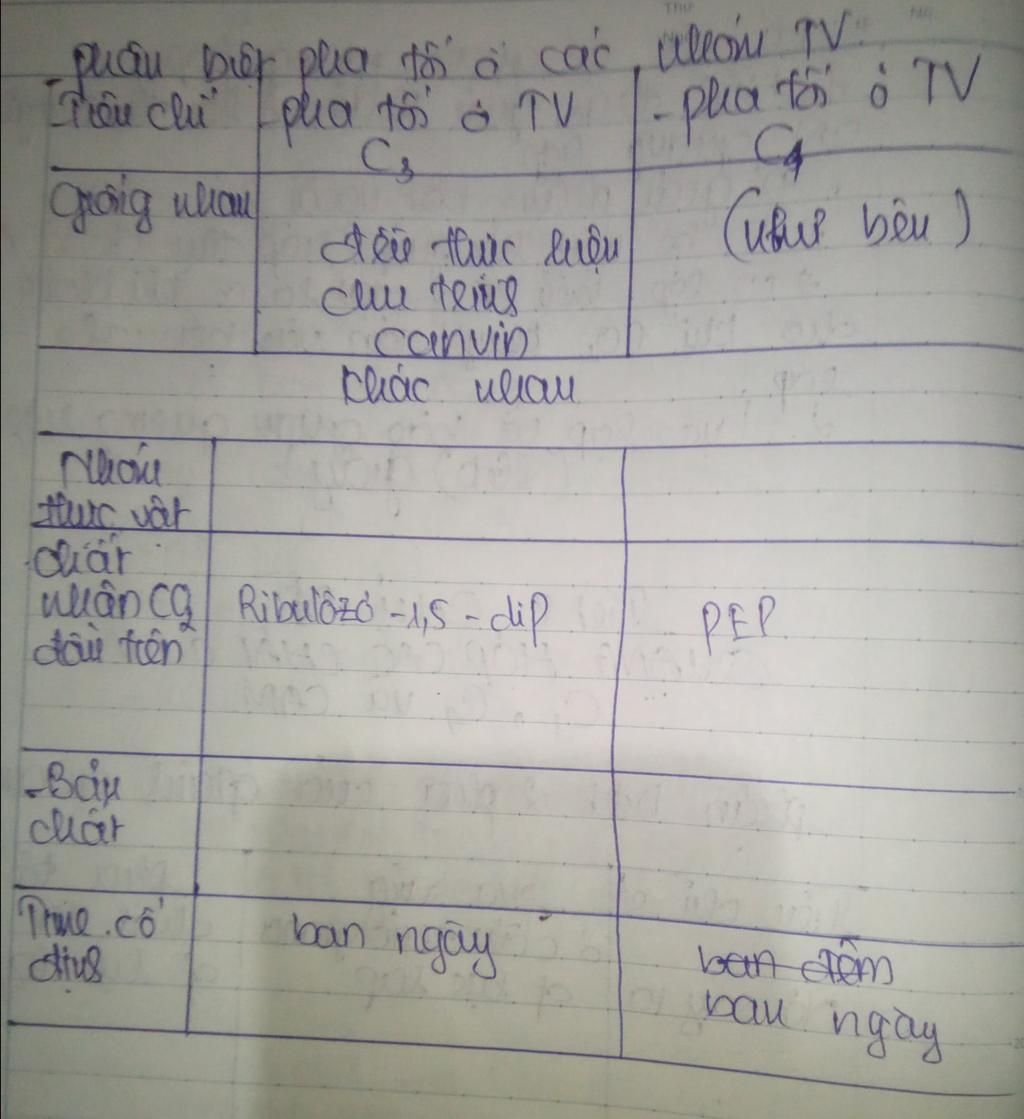 - phân biệt pha tối ở các nhóm TV
Tiêu chí
- pha tối ở TV
C3
- pha tối ở TV
C4
Giống nhau
đều thực hiện
chu trình
canvin
(như bên)
Khác nhau
Nhóm
thực vật
chất
nhận CO2
đầu tiên
Ribulôzơ -1,5 - dip
PEP
- Bản
chất
Time cố
định
ban ngày
ban đêm
ban ngày